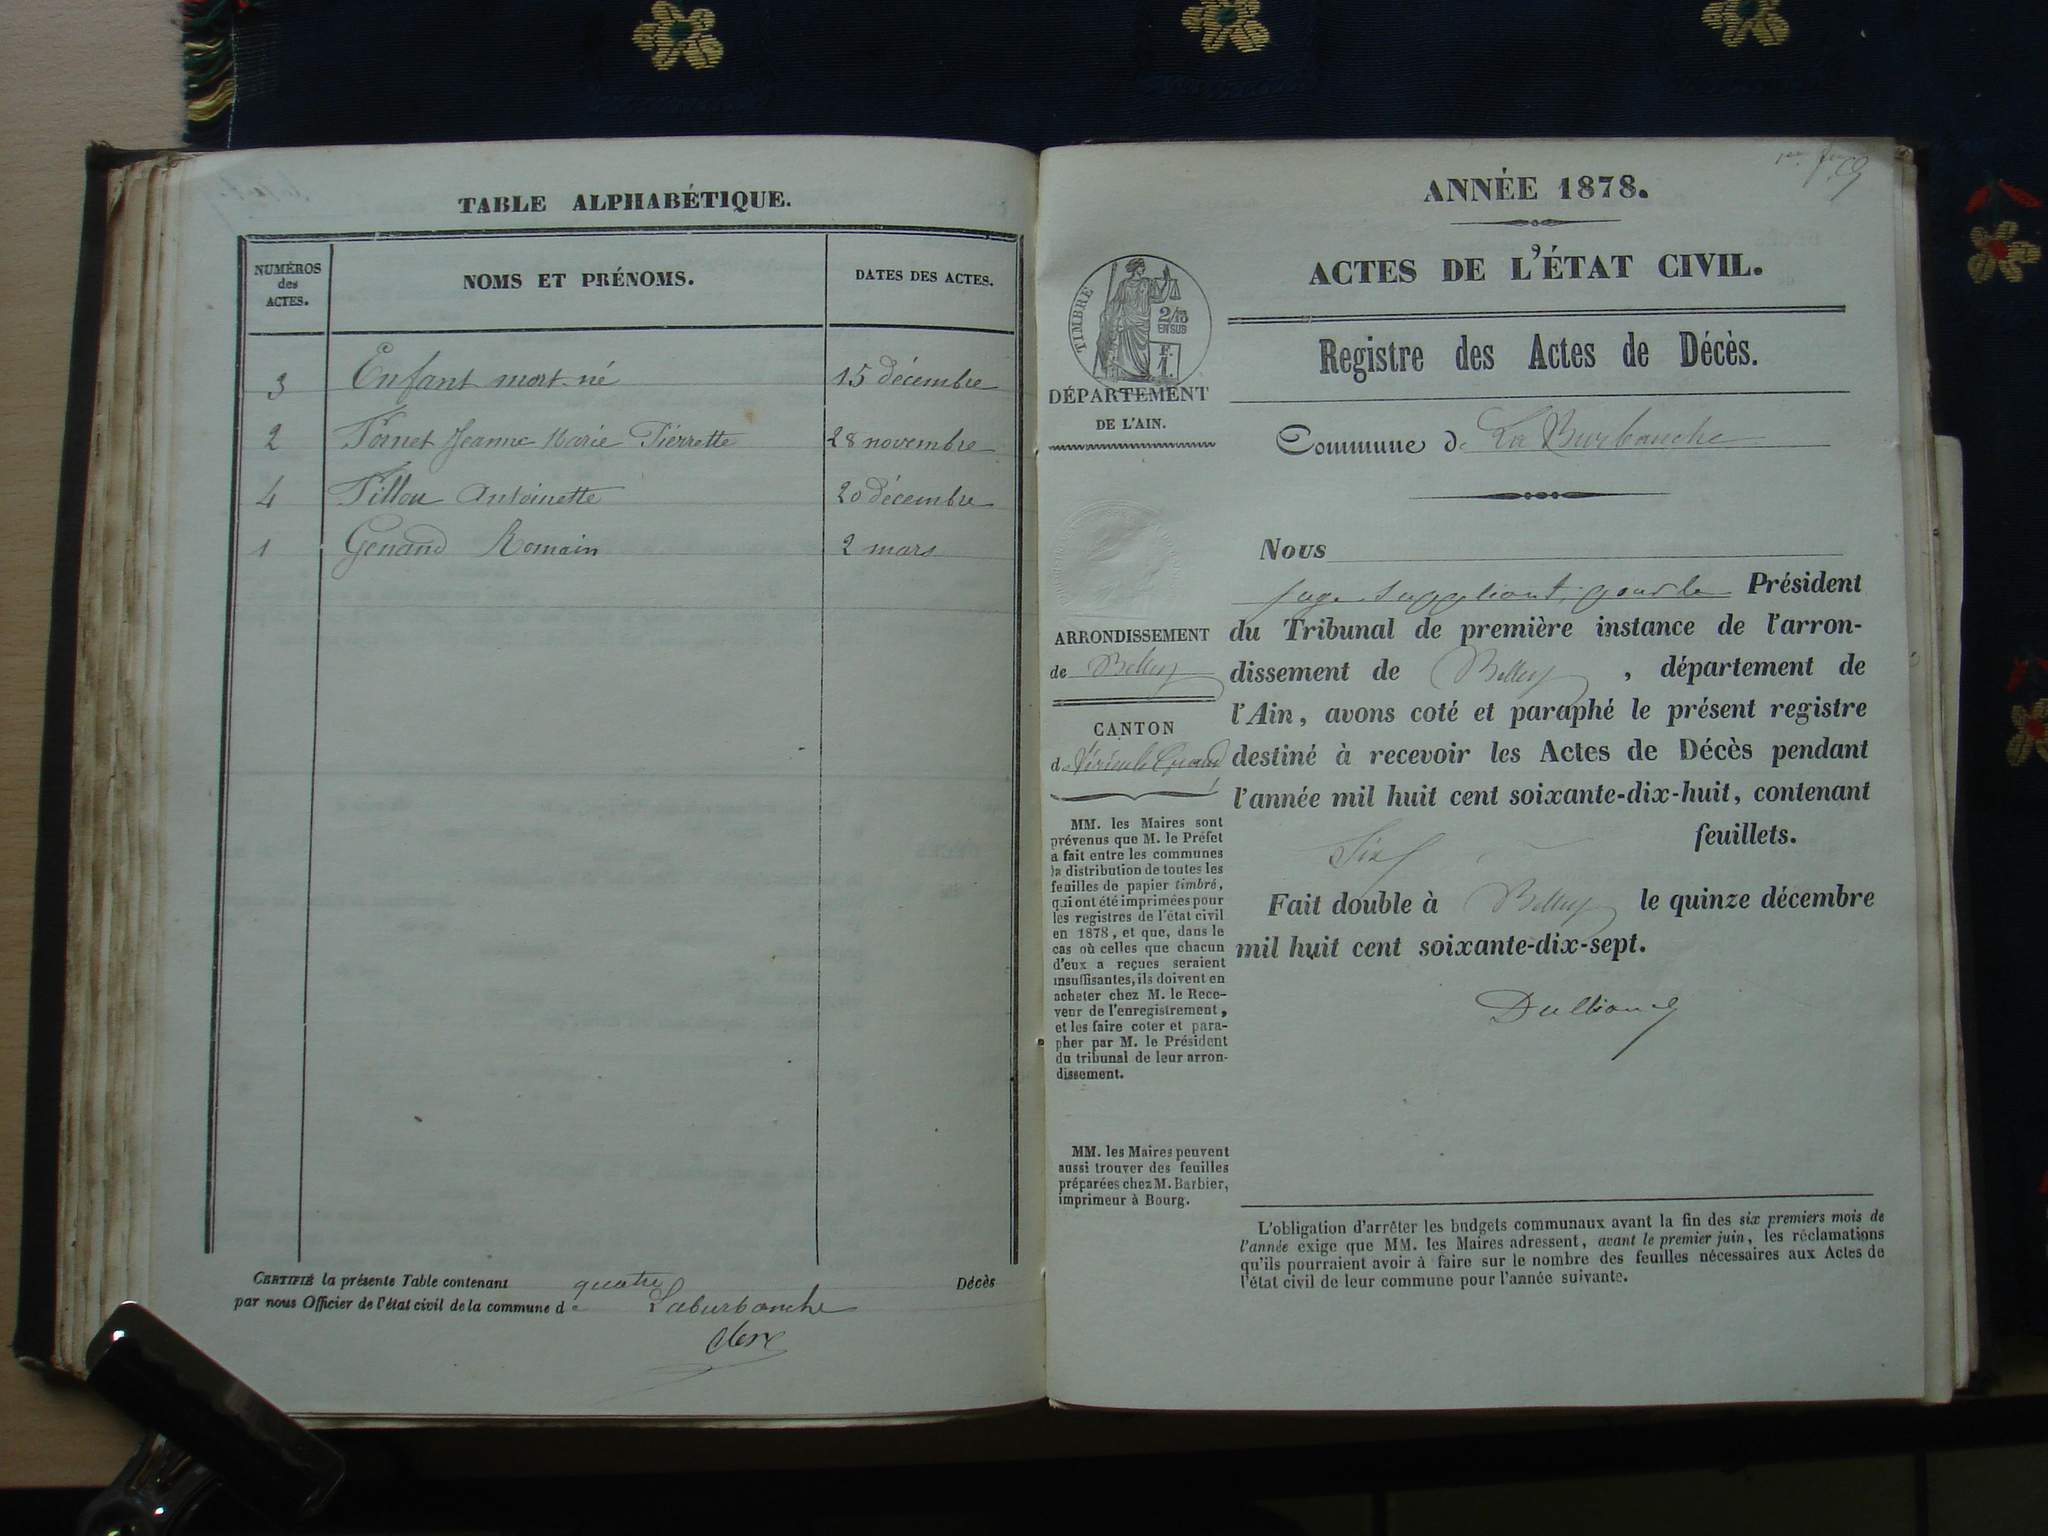 TABLE ALPHABÉTIQUE.
NUMÉROS
des
ACTES.
NOMS ET PRÉNOMS.
DATES DES ACTES.
3 Enfant mort-né 15 décembre
2 Fornet Jeanne Marie Pierrette 28 novembre
4 Fillou Antoinette 20 décembre
1 Genand Romain 2 mars
CERTIFIÉ la présente Table contenant quatre Décès
par nous Officier de l'état civil de la commune de Laburbanche
ANNÉE 1878.
ACTES DE L'ÉTAT CIVIL.
Registre des Actes de Décès.
TIMBRE
2/10
EN SUS
F.
1.
DÉPARTEMENT
DE L'AIN.
Commune de La Burbanche
ARRONDISSEMENT
de Belley
CANTON
de Virieu le Grand
MM. les Maires sont
prévenus que M. le Préfet
a fait entre les communes
la distribution de toutes les
feuilles de papier timbré,
qui ont été imprimées pour
les registres de l'état civil
en 1878, et que, dans le
cas où celles que chacun
d'eux a reçues seraient
insuffisantes, ils doivent en
acheter chez M. le Rece-
veur de l'enregistrement,
et les faire coter et para-
pher par M. le Président
du tribunal de leur arron-
dissement.
MM. les Maires peuvent
aussi trouver des feuilles
préparées chez M. Barbier,
imprimeur à Bourg.
Nous
juge suppléant, pour le Président
du Tribunal de première instance de l'arron-
dissement de Belley, département de
l'Ain, avons coté et paraphé le présent registre
destiné à recevoir les Actes de Décès pendant
l'année mil huit cent soixante-dix-huit, contenant
Six feuillets.
Fait double à Belley le quinze décembre
mil huit cent soixante-dix-sept.
L'obligation d'arrêter les budgets communaux avant la fin des six premiers mois de
l'année exige que MM. les Maires adressent, avant le premier juin, les réclamations
qu'ils pourraient avoir à faire sur le nombre des feuilles nécessaires aux Actes de
l'état civil de leur commune pour l'année suivante.